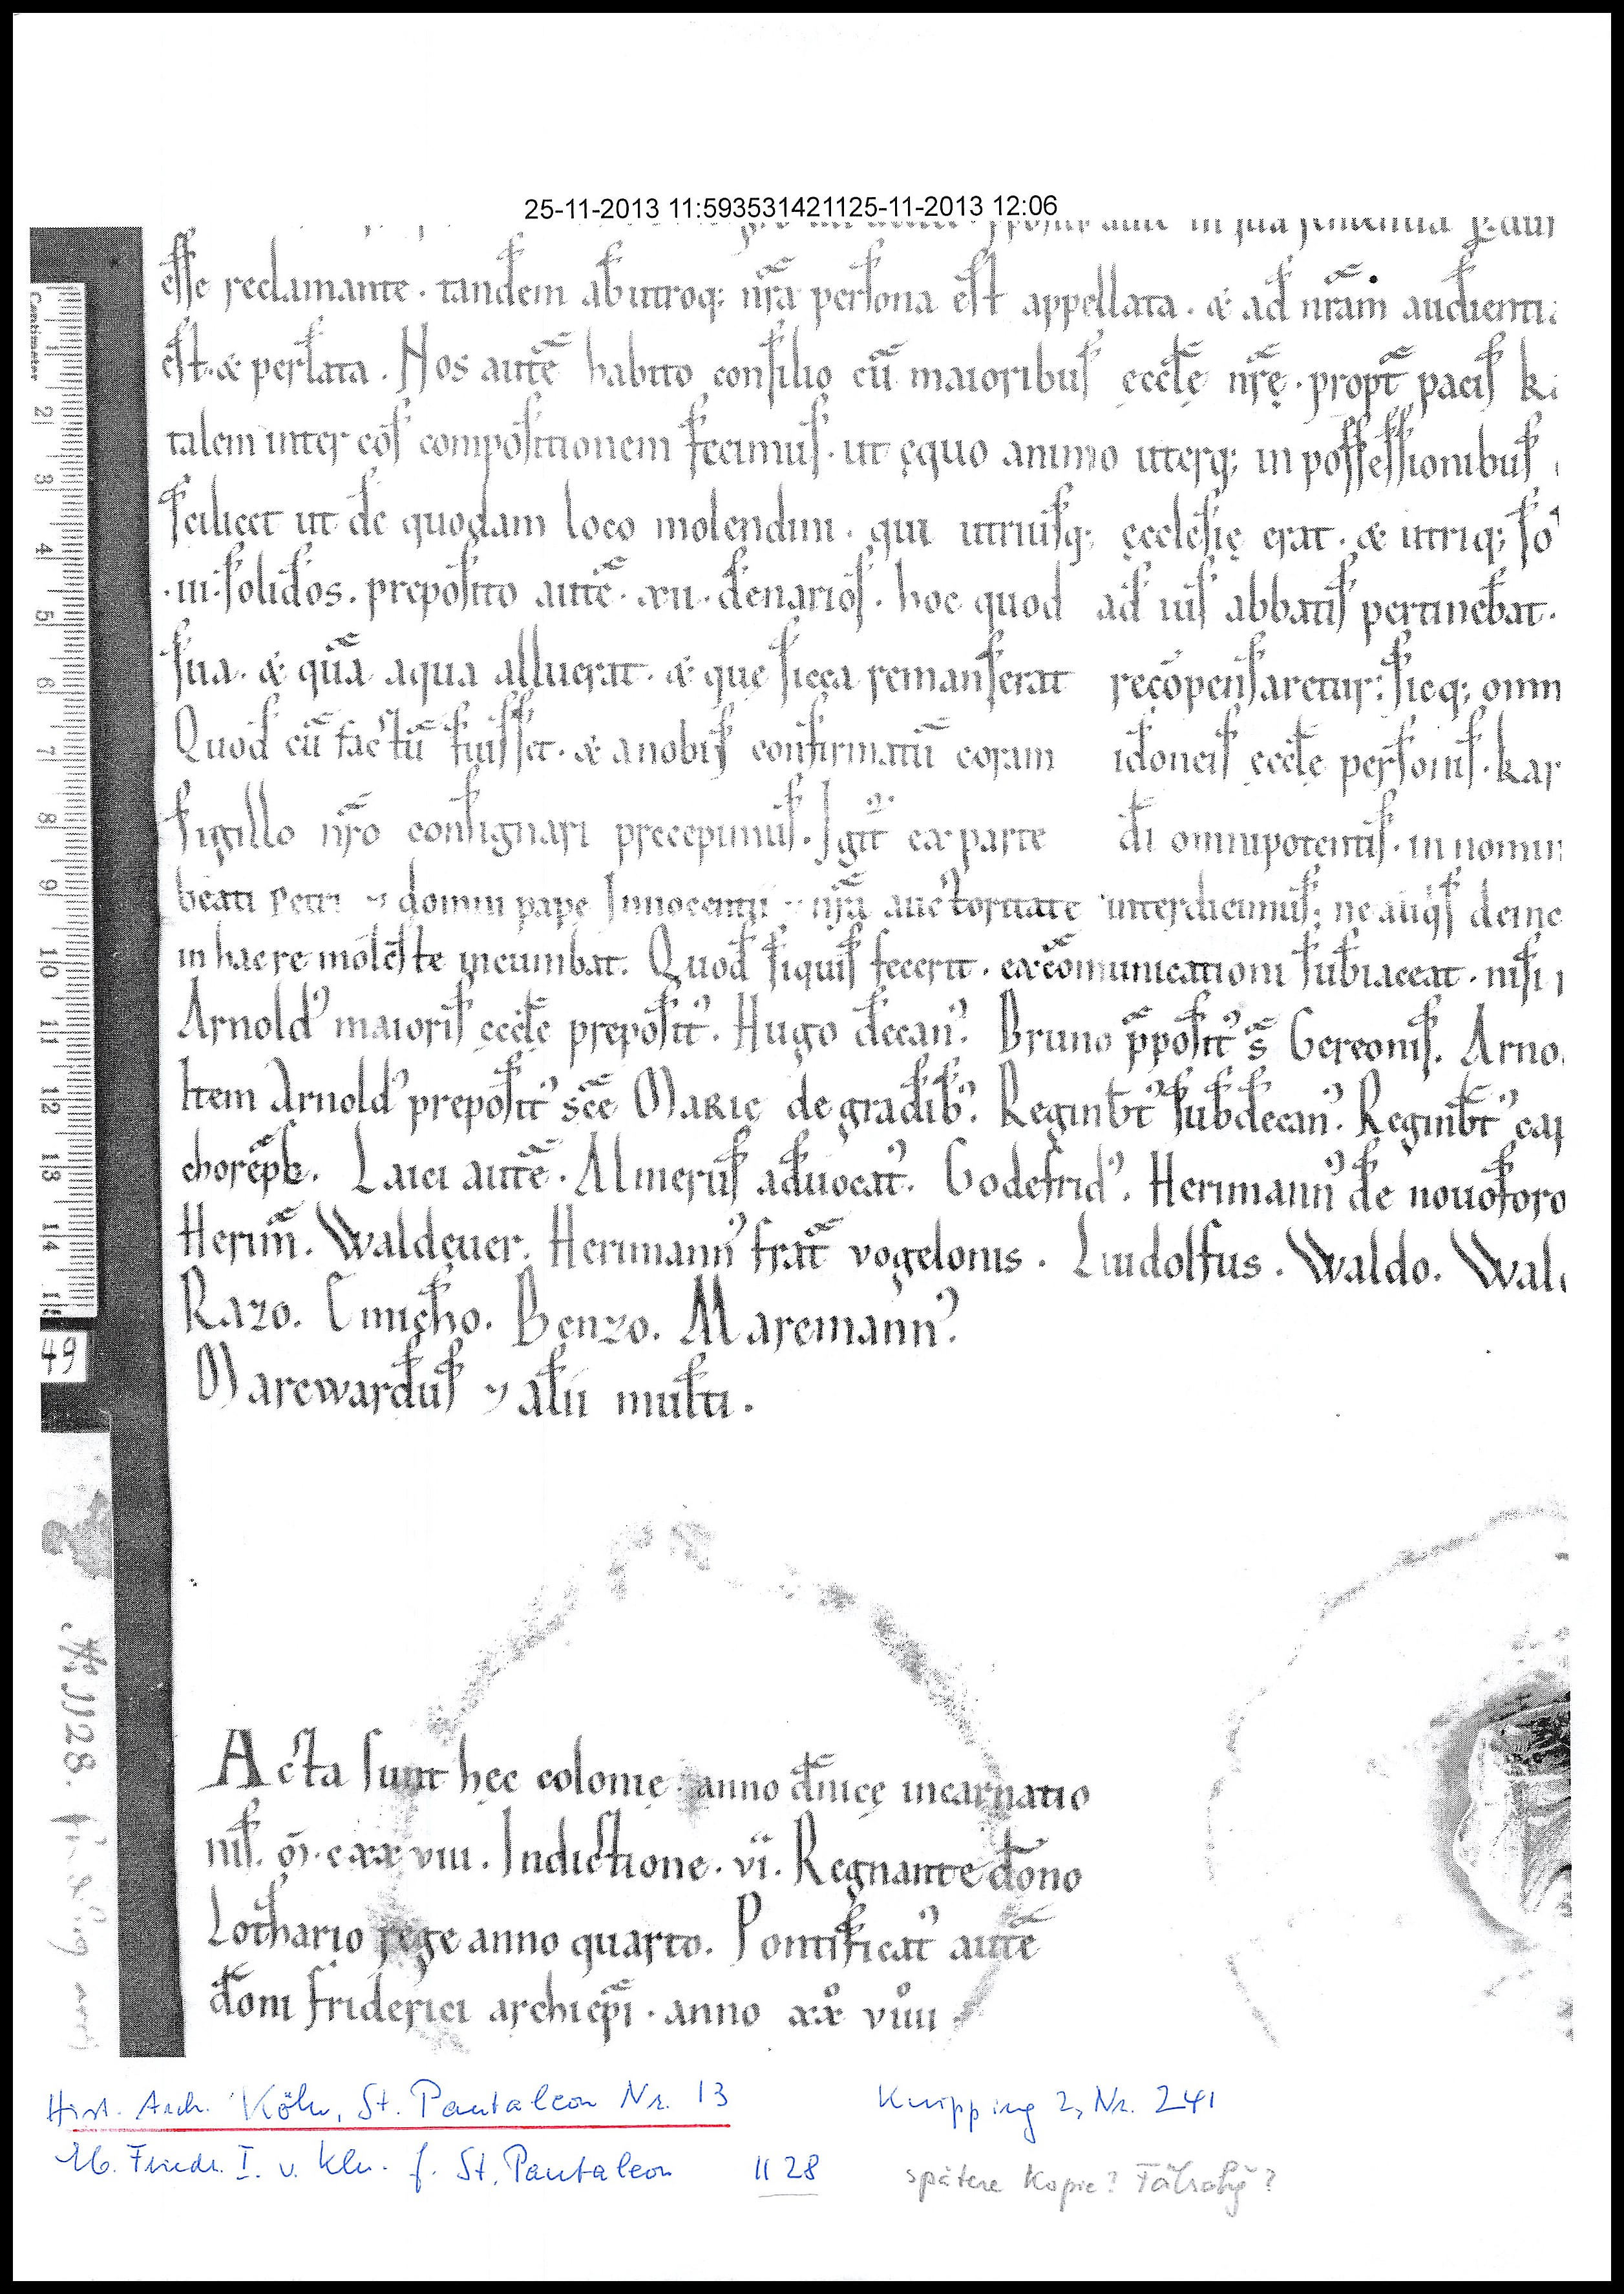 25-11-2013 11:593531421125-11-2013 12:06
in sua sententia
esse reclamante · tandem ab utroq; nr̄a persona est appellata · & ad nr̄am audienti
est · & perlata . Nos autē habito consilio cū maioribus ęccl̄ę nr̄ę · propt̄ pacis k
talem inter eos compositionem fecimus · ut ęquo animo uterq; in possessionibus
scilicet ut de quodam loco molendini · qui utriusq; ęcclesię erat · & utriq; so
· iii · solidos . preposito autē · xii · denarios . hoc quod ad ius abbatis pertinebat ·
sua · & quā aqua alluerat · & quę sicca remanserat recōpensaretur; sicq; omn
Quod cū factū fuisset · & a nobis confirmatū coram idoneis ęccl̄ę personis · kar
sigillo nr̄o consignari precepimus . Igit̄ ex parte dī omnipotentis · in nomin
beati Petri ⁊ domini papę Innocentii ⁊ nr̄a auctoritate interdicimus; ne aliq̄s deinc
in hac re moleste incumbat . Quod siquis fecerit · excōmunicationi subiaceat · nisi
Arnold’ maioris ęccl̄ę preposit’ . Hugo decan’ . Bruno p̄posit’ s̄ Gereonis . Arno
Item Arnold’ preposit’ sc̄e Marię de gradib’ . Reginb̄t’ subdecan’ . Reginb̄t’ cap
chorep̄c . Laici autē . Almerus aduocat’ . Godefrid’ . Herimann’ de nouoforo
Herim̄ . Waldeuer . Herimann’ frat̄ vogelonis . Liudolfus . Waldo . Wal
Razo . Cunicho . Benzo . Marcmann’ .
Marcwardus ⁊ alii multi .
Acta sunt hęc colonię · anno dn̄icę incarnatio
nis . M̄ · c xx viii . Indictione · vi . Regnante dōno
Lothario rege anno quarto . Pontificat’ autē
dōni friderici archiep̄i · anno xx viiii
Centimeter
2
3
4
5
6
7
8
9
10
11
12
13
14
49
No 1128.
Hist. Arch. Köln, St. Pantaleon Nr. 13
Knipping 2, Nr. 241
Eb. Friedr. I. v. Kln. f. St. Pantaleon 1128
spätere Kopie? Fälschg?